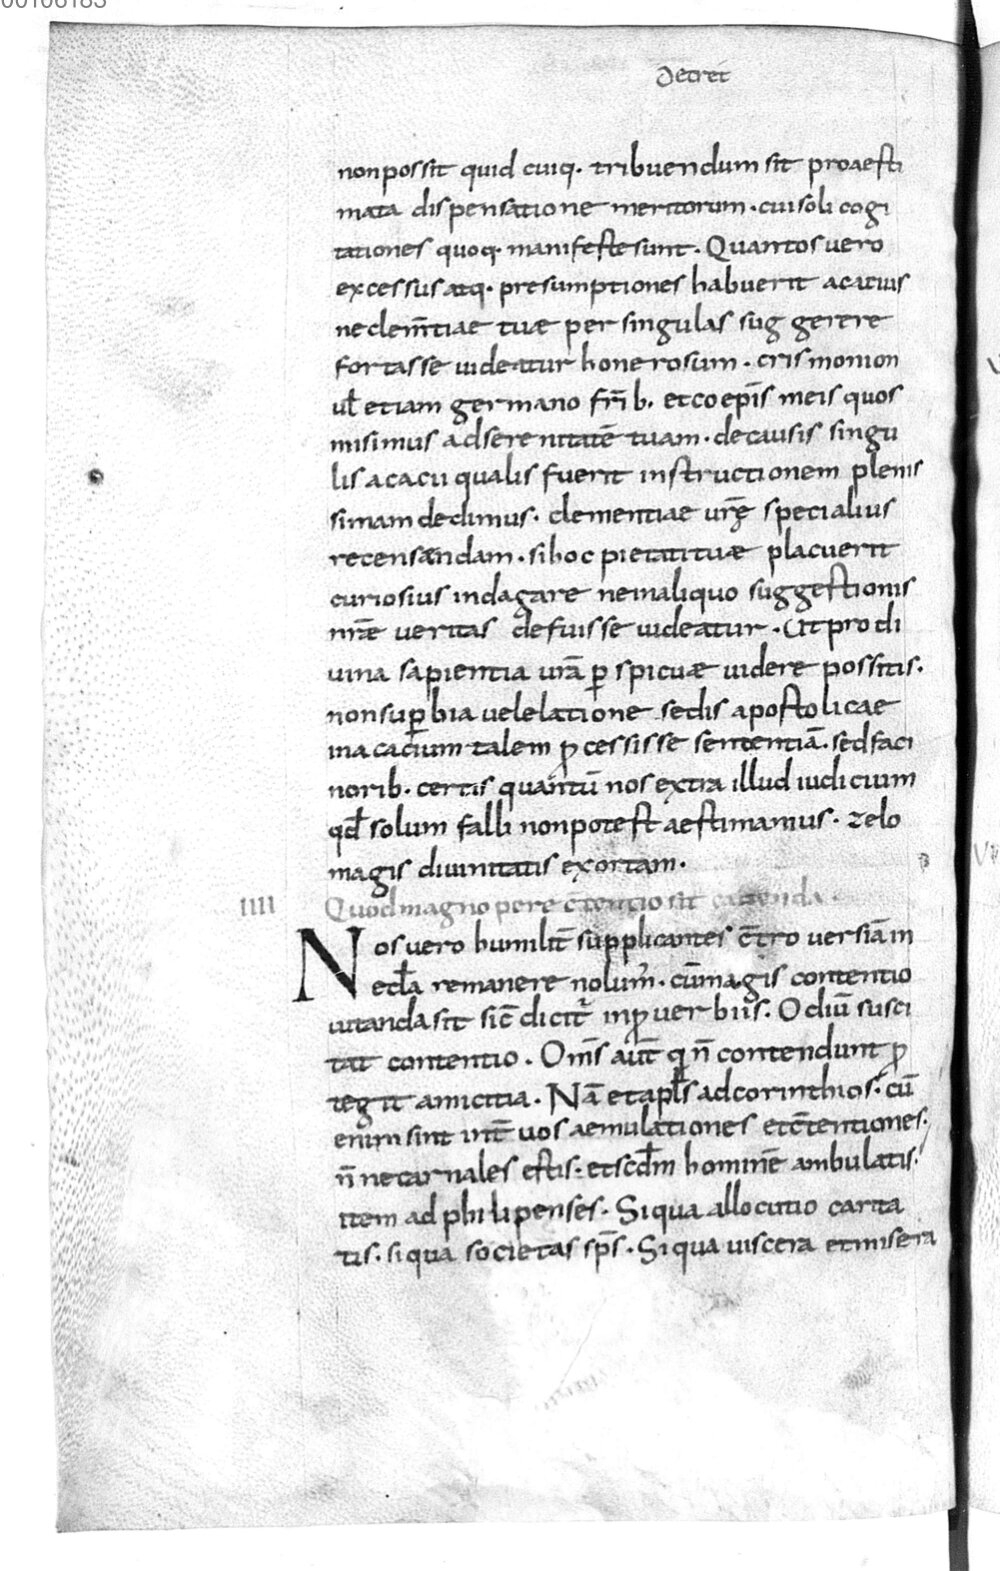 00106183
Decret
non possit quid cuiq. tribuendum sit pro aesti
mata dispensatione meritorum. cui soli cogi
tationes quoq. manifeste sunt. Quantos vero
excessus atq. presumptiones habuerit acatius
ne clem̅tiae tuae per singulas suggerere
fortasse uideatur honerosum. crismonion
ul̅ etiam germano fr̅i b. et coep̅is meis quos
misimus ad serenitate̅ tuam. de causis singu
lis acacii qualis fuerit instructionem plenis
simam dedimus. clementiae ur̅ę specialius
recensændam. si hoc pietati tuæ placuerit
curiosius indagare nem aliquo suggestionis
nr̅æ ueritas defuisse uideatur. Ut pro di
uina sapientia ur̅a p̱spicuæ uidere possitis.
non sup̱bia uel elatione sedis apostolicae
in acacium talem ꝓcessisse sententia̅. sed faci
norib. certis quantu̅ nos extra illud iudicium
qd̅ solum falli non potest aestimamus. zelo
magis diuinitatis exortam.
IIII Quod magno pere c̅tentio sit cauenda.
Nos uero humilit̅ supplicantes c̅trouersia̅ in
eccl̅a remanere nolum̕. cu̅ magis contentio
uitanda sit sic̅ dicit̕ in ꝓuerbiis. Odiu̅ susci
tat contentio. Om̅s aut̅ q n̅ contendunt ꝓ
tegit amicitia. Na̅ et apl̅s ad corinthios. cu̅
enim sint int̅ uos aemulationes et c̅tentiones.
n̅ne carnales estis. et scd̅m homine̅ ambulatis.
item ad philipenses. Si qua allocutio carita
tis. si qua societas sp̅s. Si qua uiscera et misera